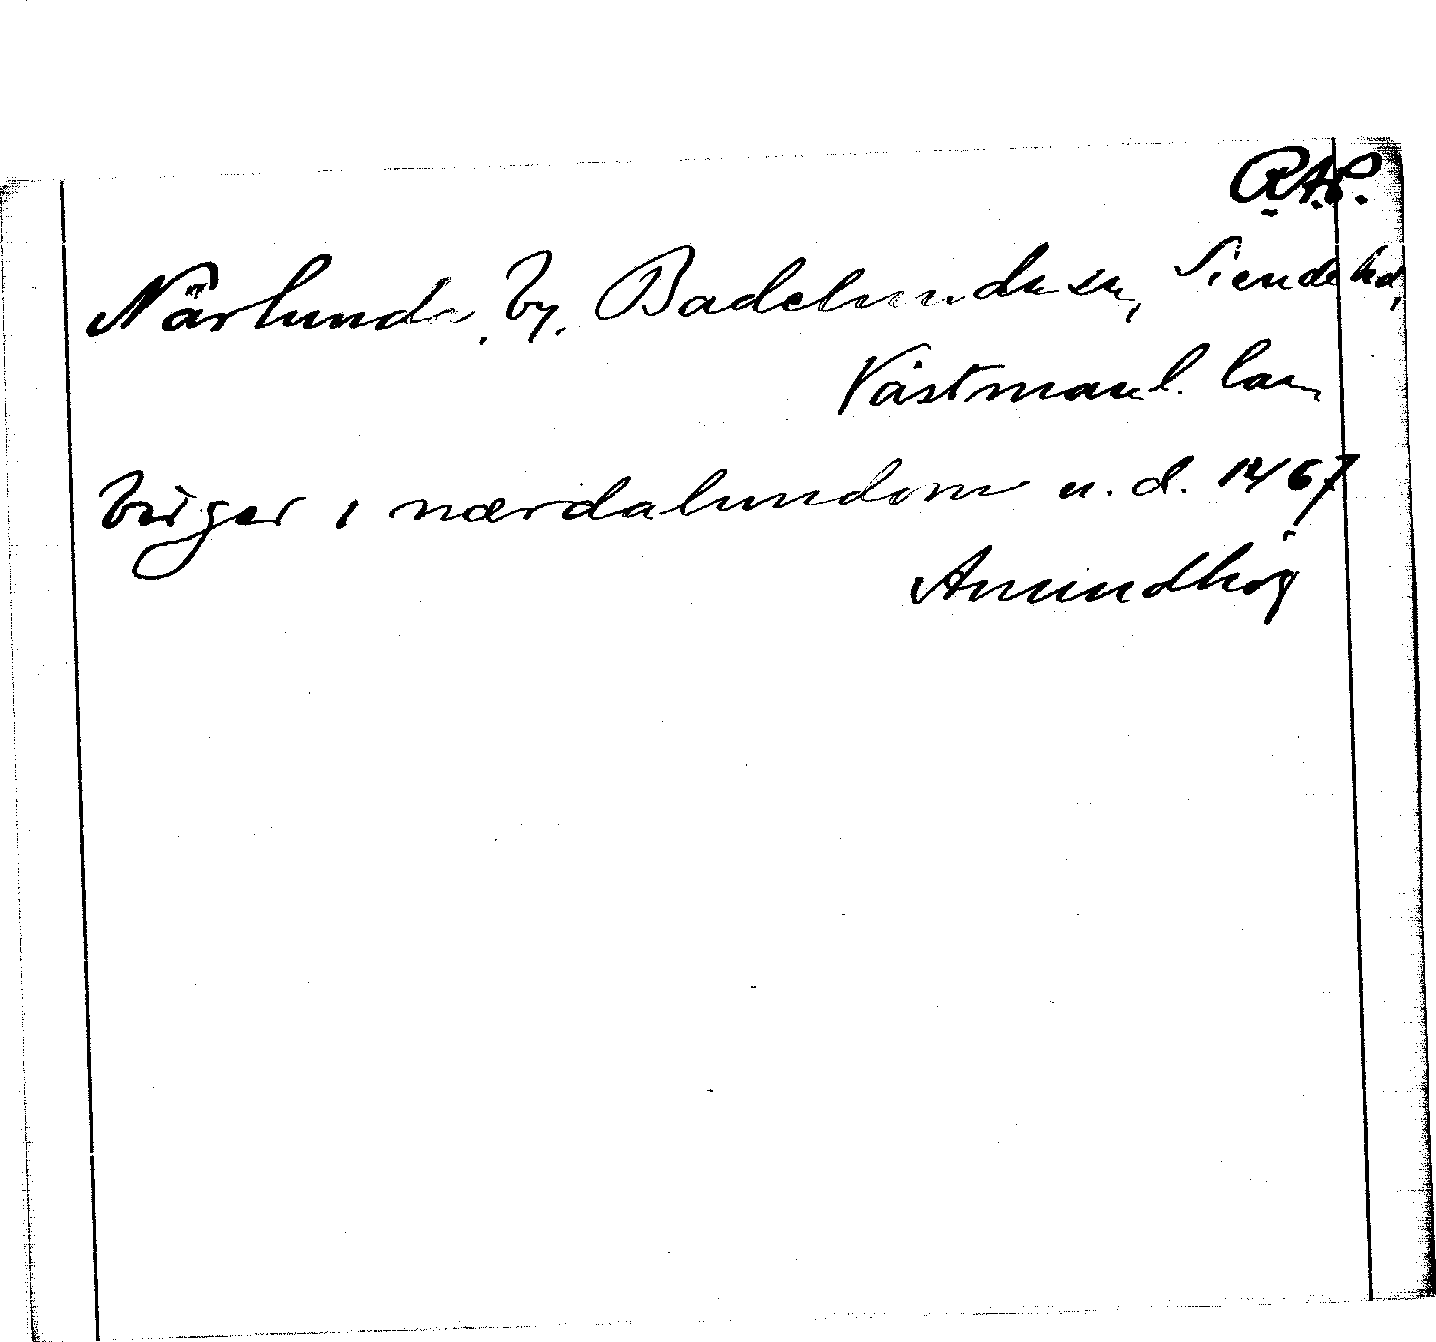 R.A.P.
Närlunda, by, Badelunda sn, Siende hd,
Västmanl. län
birger i nærdalundom u. d. 1467
Amundhög